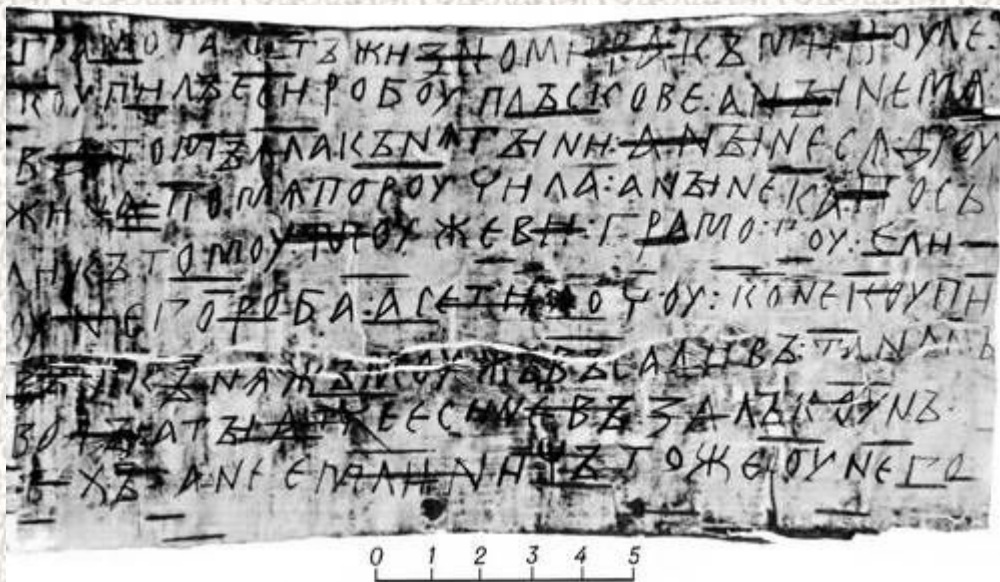 грамота : ѡтъ жизномира : къ микоуле :
коупилъ еси : робоу : плъскове : а ныне мѧ :
въ томъ : ѧла кънѧгыни : а ныне сѧ дроу
жина : по мѧ пороучила : а ныне ка : посъ
ли къ томоу : моужеви : грамотоу : е ли
оу него роба : а се ти хочоу : коне коупи
въ : и кънѧжъ моужъ въсадивъ : та на съ
воды : а ты атче еси не възалъ коунъ :
техъ : а не емли : ничъто же оу него :
0 1 2 3 4 5